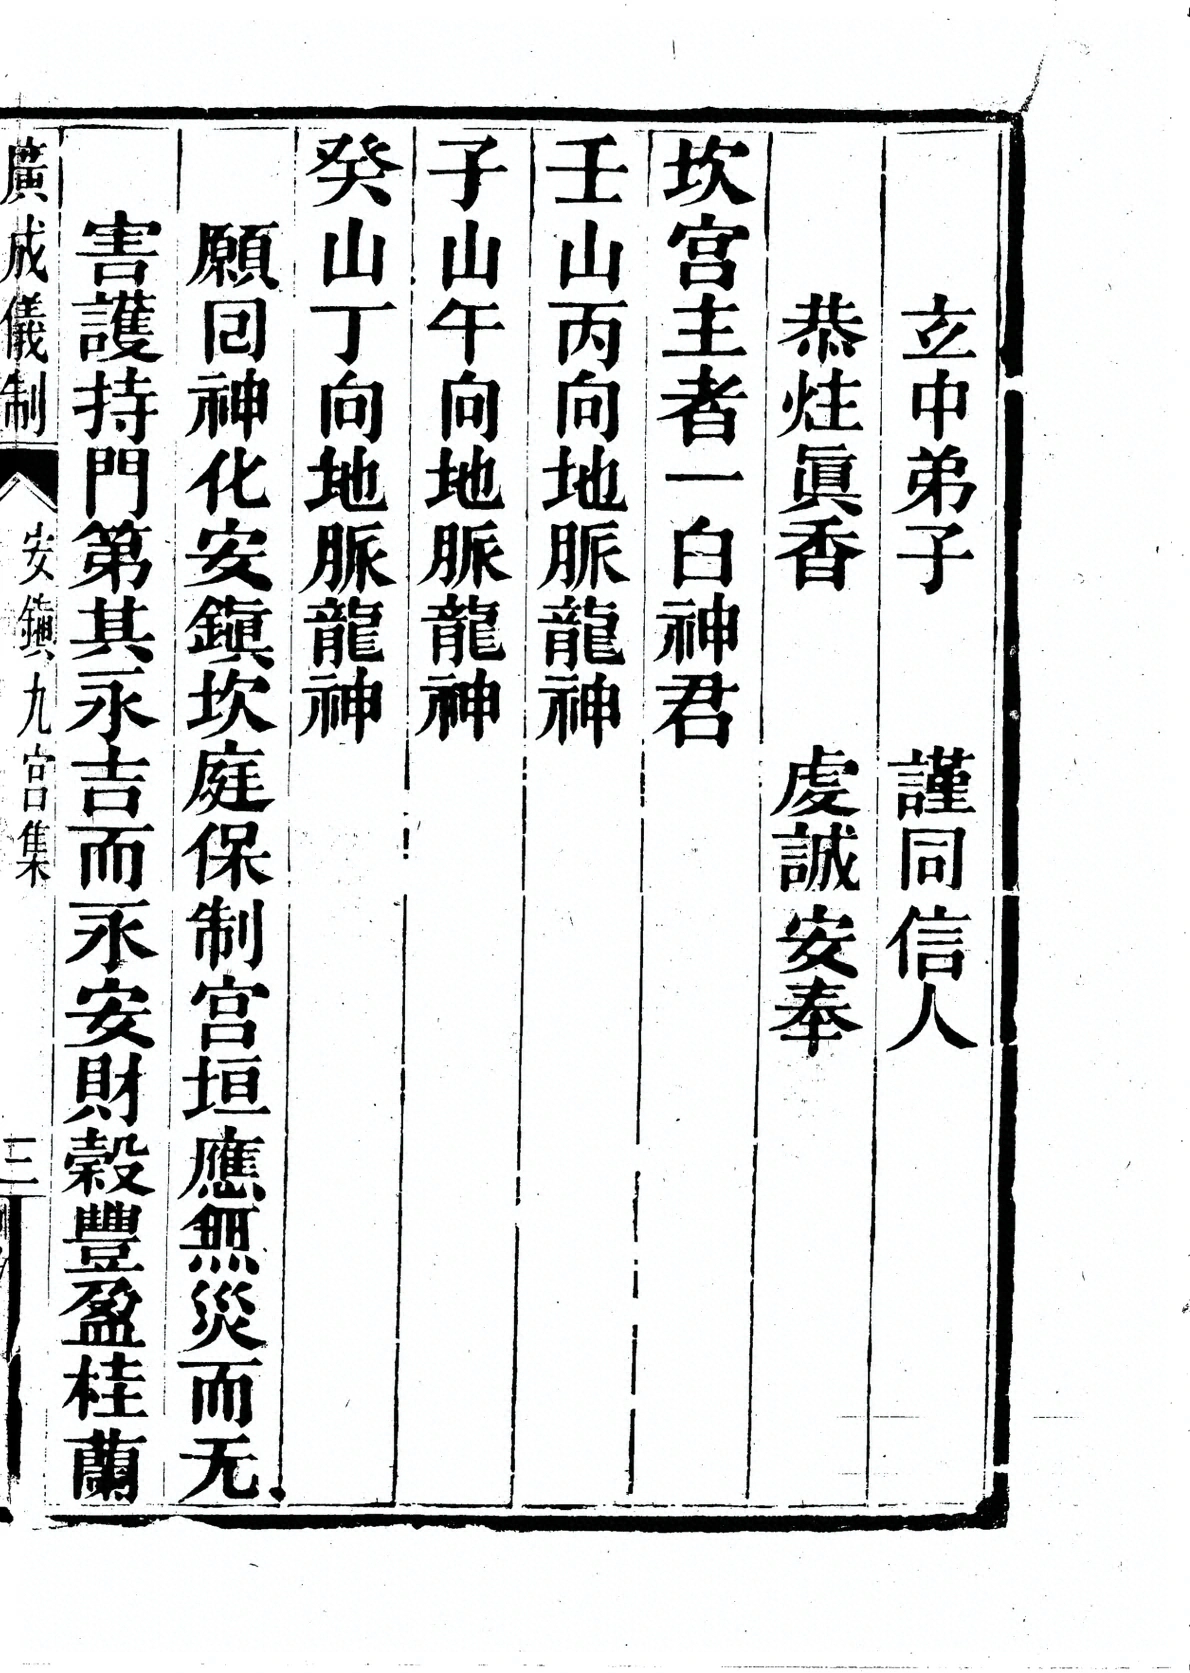 玄中弟子　　謹同信人
恭炷眞香　　虔誠安奉
坎宫主者一白神君
壬山丙向地脈龍神
子山午向地脈龍神
癸山丁向地脈龍神
願回神化安鎭坎庭保制宫垣應無災而无
害護持門第其永吉而永安財穀豐盈桂蘭
廣成儀制
安鎮九宫集
三